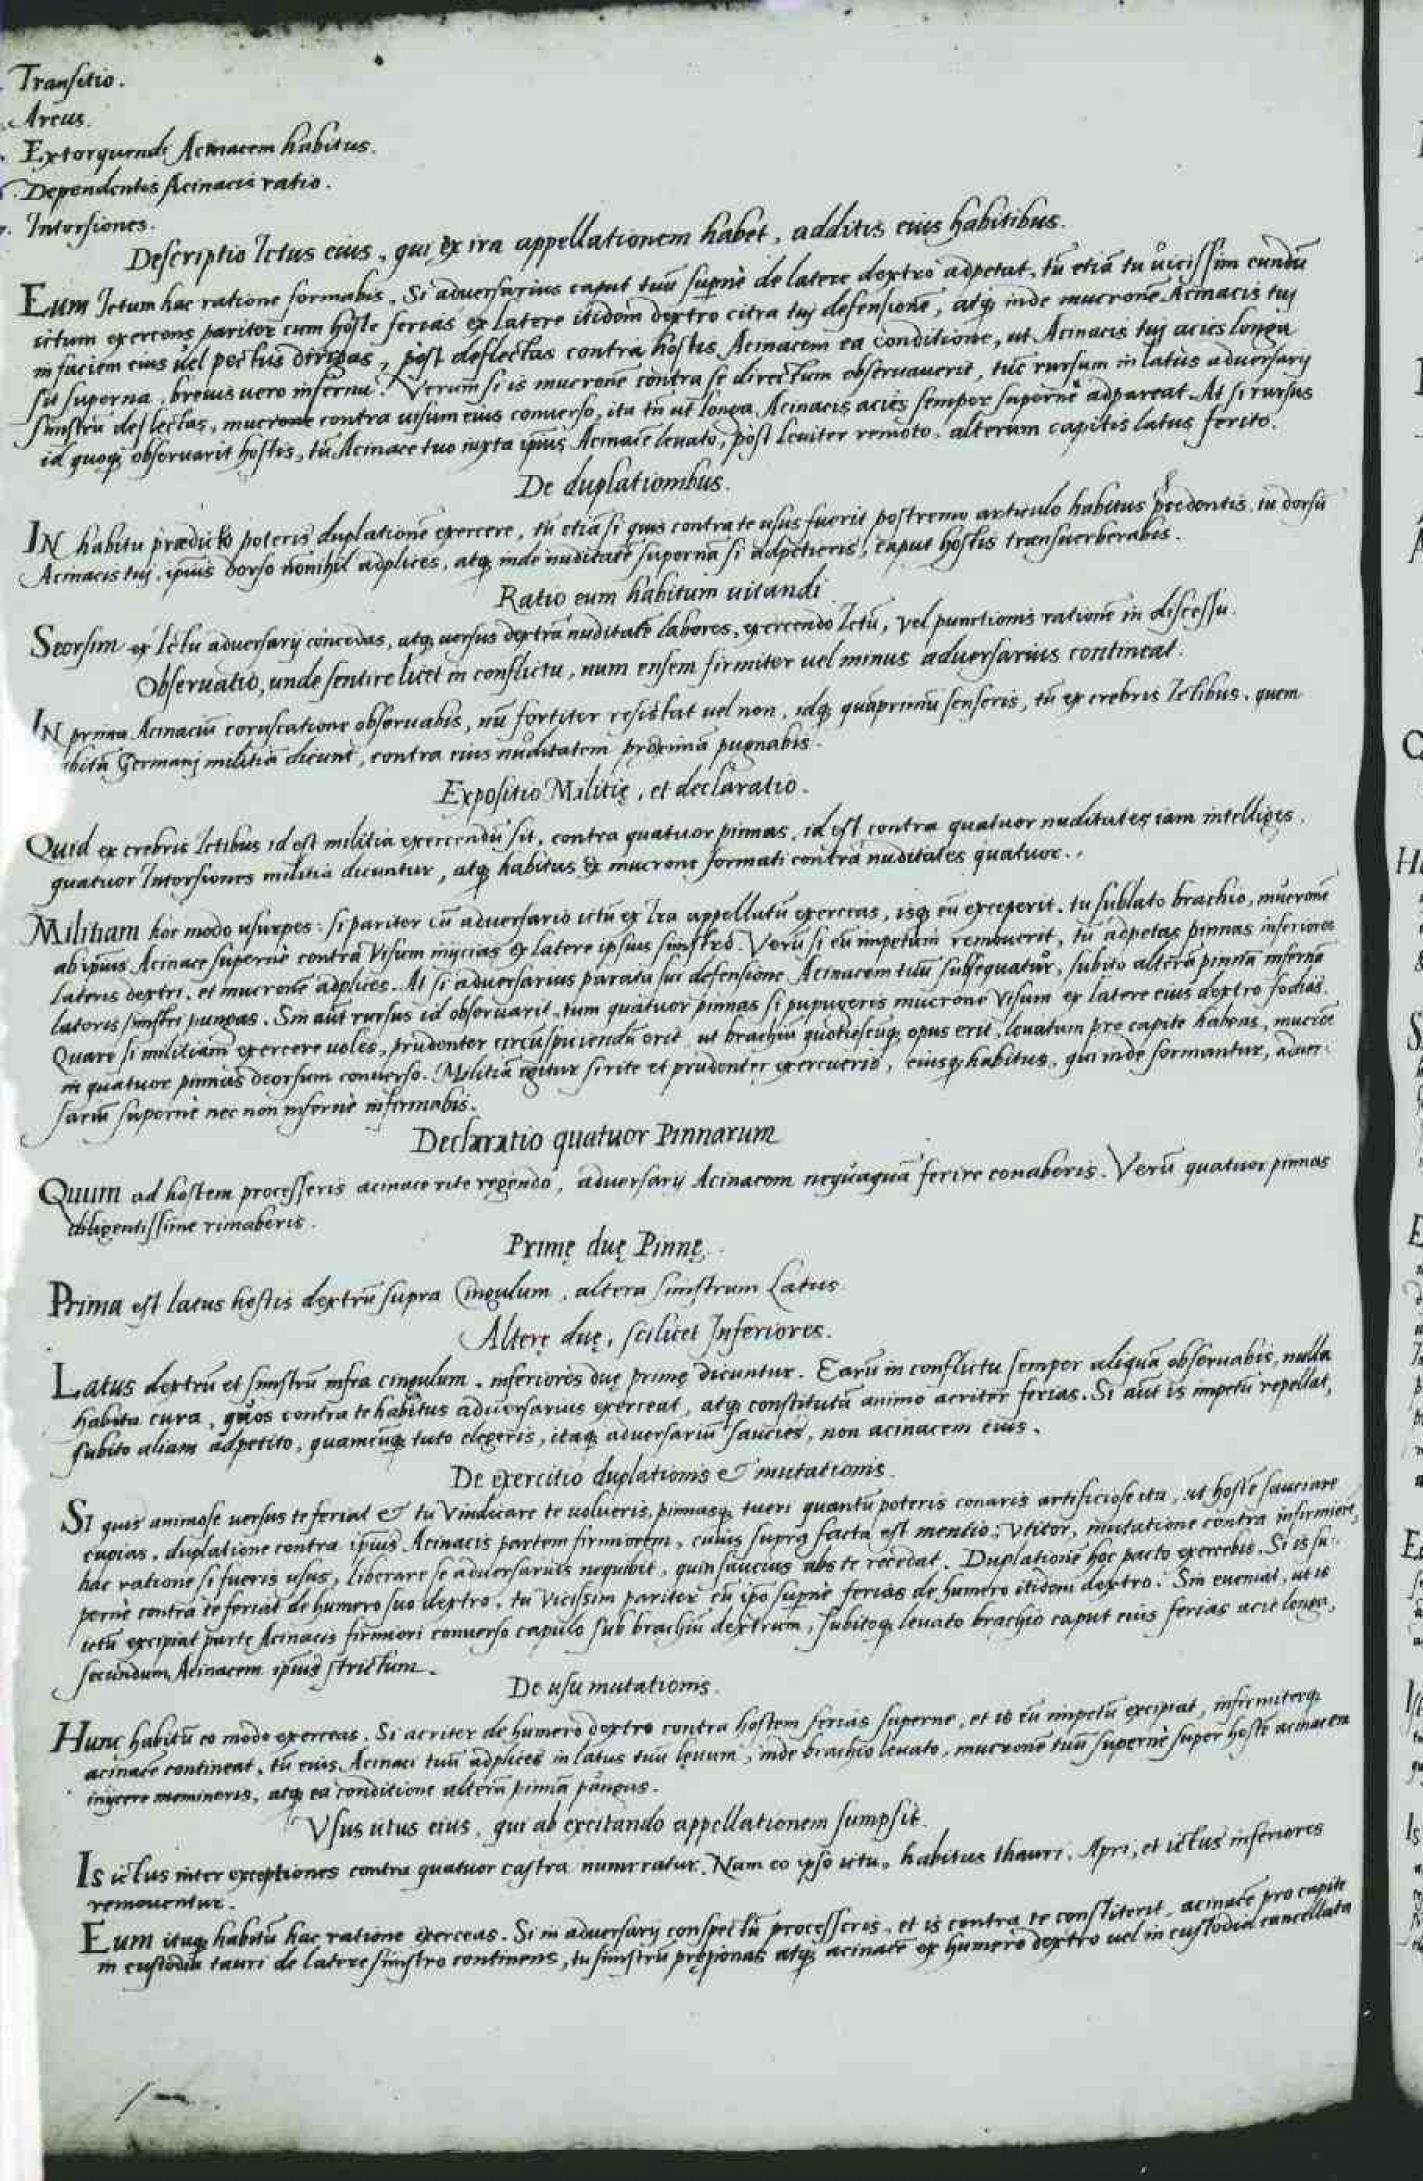 Transitio.
Arcus.
Extorquendi Acinacem habitus.
Dependentis Acinacis ratio.
Intorsiones.
Descriptio Ictus eius, qui ex ira appellationem habet, additis eius habitibus.
Eum Ictum hac ratione formabis. Si adversarius caput tuũ supernè de latere dextro adpetat, tũ etiã tu uicissim eundũ
ictum exercens pariter cum hoste ferias ex latere itidem dextro citra tuj defensionẽ, atq; inde mucronẽ Acinacis tuj
in faciem eius uel pectus dirigas, post deflectas contra hostis Acinacem ea conditione, ut Acinacis tuj acies longa
sit superna, breuis uero inferna. Verum si is mucronẽ contra se directum obseruauerit, tũc rursum in latus adversarij
sinistrũ deflectas, mucrone contra uisum eius conuerso, ita tñ ut longa Acinacis acies semper supernè adpareat. At si rursus
id quoq; obseruarit hostis, tũ Acinace tuo iuxta ipsius Acinacẽ leuato, post leuiter remoto, alterum capitis latus ferito.
De duplationibus.
IN habitu prædicto poteris duplationẽ exercere, tũ etiã si quis contra te usus fuerit postremo articulo habitus precedentis, tu dorsũ
Acinacis tuj, ipsius dorso nonihil adplices, atq; inde nuditatẽ supernã si adpetieris, caput hostis transuerberabis.
Ratio eum habitum uitandi
Seorsim ex Ictu adversarij concedas, atq; uersus dextrã nuditatẽ labores, exercendo Ictũ, vel punctionis rationẽ in discessu.
Obseruatio, unde sentire licet in conflictu, num ensem firmiter uel minus adversarius contineat.
IN prima Acinaciũ coruscatione obseruabis, nũ fortiter resistat uel non, idq; quãprimũ senseris, tũ ex crebris Ictibus, quem
habitũ Germanj militiã dicunt, contra eius nuditatem proximã pugnabis.
Expositio Militię, et declaratio.
Quid ex crebris Ictibus id est militia exercendũ sit, contra quatuor pinnas, id est contra quatuor nuditates iam intelliges,
quatuor Intorsiones militia dicuntur, atq; habitus ex mucrone formati contra nuditates quatuor.
Militiam hoc modo usurpes: si pariter cũ adversario ictũ ex Ira appellatũ exerceas, isq; eũ exceperit, tu sublato brachio, mucronẽ
ab ipsius Acinace supernè contra Visum inijcias ex latere ipsius sinistro. Verũ si eũ impetum remouerit, tũ adpetas pinnas inferiores
lateris dextri, et mucronẽ adplices. At si adversarius parata sui defensione Acinacem tuũ subsequatur, subito alterã pinnã infernè
lateris sinistri pungas. Sin aũt rursus id obseruarit, tum quatuor pinnas si pupugeris mucrone Visum ex latere eius dextro fodias.
Quare si militiam exercere uoles, prudenter circũspiciendũ erit, ut brachiũ quotiescũq; opus erit, leuatum pro capite habeas, mucrõe
in quatuor pinnas deorsum conuerso. Militiã igitur si rite et prudenter exercueris, eiusq; habitus, qui inde formantur, adver-
sariũ supernè nec non infernè infirmabis.
Declaratio quatuor Pinnarum
Quum ad hostem processeris acinace rite regendo, adversarij Acinacem nequaquã ferire conaberis. Verũ quatuor pinnas
diligentissime rimaberis.
Primę duę Pinnę.
Prima est latus hostis dextrũ supra Cingulum, altera sinistrum Latus.
Alterę duę, scilicet Inferiores.
Latus dextrũ et sinistrũ infra cingulum, inferiores duę primę dicuntur. Earũ in conflictu semper aliquã obseruabis, nulla
habita cura, quos contra te habitus adversarius exerceat, atq; constitutũ animo acriter ferias. Si aũt is impetũ repellat,
subito aliam adpetito, quamcũq; tuto elegeris, itaq; adversariũ saucies, non acinacem eius.
De exercitio duplationis et mutationis.
SI quis animose uersus te feriat et tu Vindicare te uolueris, pinnasq; tueri quantũ poteris conaris artificiose ita, ut hostẽ sauciare
cupias, duplatione contra ipsius Acinacis partem firmiorem, cuius supra facta est mentio, Vtitor, mutatione contra infirmiorẽ,
hac ratione si fueris usus, liberare se adversarius nequibit, quin saucius abs te recedat. Duplationẽ hoc pacto exercebis. Si is su-
pernè contra te feriat de humero suo dextro, tu Vicissim pariter cũ ipso supernè ferias de humero itidem dextro. Sin eueniat, ut is
ictũ excipiat parte Acinacis firmiori conuerso capulo sub brachiũ dextrum, subitoq; leuato brachio caput eius ferias acie longa,
secundum Acinacem ipsius strictum.
De usu mutationis.
Hunc habitũ eo modo exerceas. Si acriter de humero dextro contra hostem ferias superne, et is eũ impetũ excipiat, infirmiterq;
acinacẽ contineat, tũ eius Acinaci tuũ adplices in latus tuũ lęuum, inde brachio leuato, mucronẽ tuũ supernè super hostis acinacem
inijcere memineris, atq; ea conditione alterã pinnã pungas.
Vsus ictus eius, qui ab excitando appellationem sumpsit.
Is ictus inter exceptiones contra quatuor castra numeratur. Nam eo ipso ictu, habitus thauri, Apri, et ictus inferiores
remouentur.
Eum itaq; habitũ hac ratione exerceas. Si in adversarij conspectũ processeris, et is contra te constiterit, acinacẽ pro capite
in custodia tauri de latere sinistro continens, tu sinistrũ pręponas atq; acinacẽ ex humero dextro uel in custodia cancellata